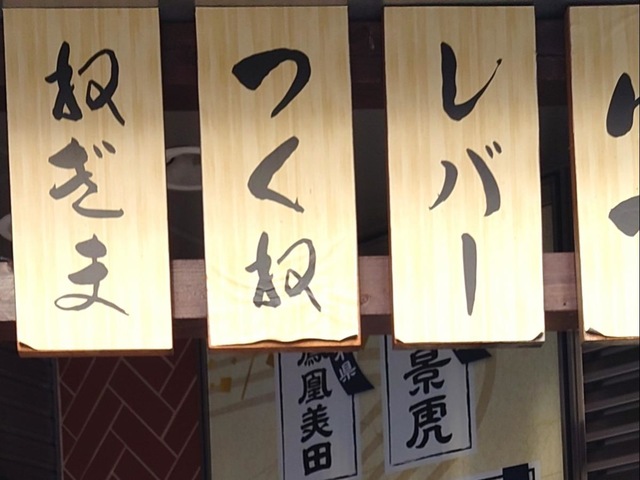 ねぎま
つくね
レバー
鳳凰美田
県
景虎